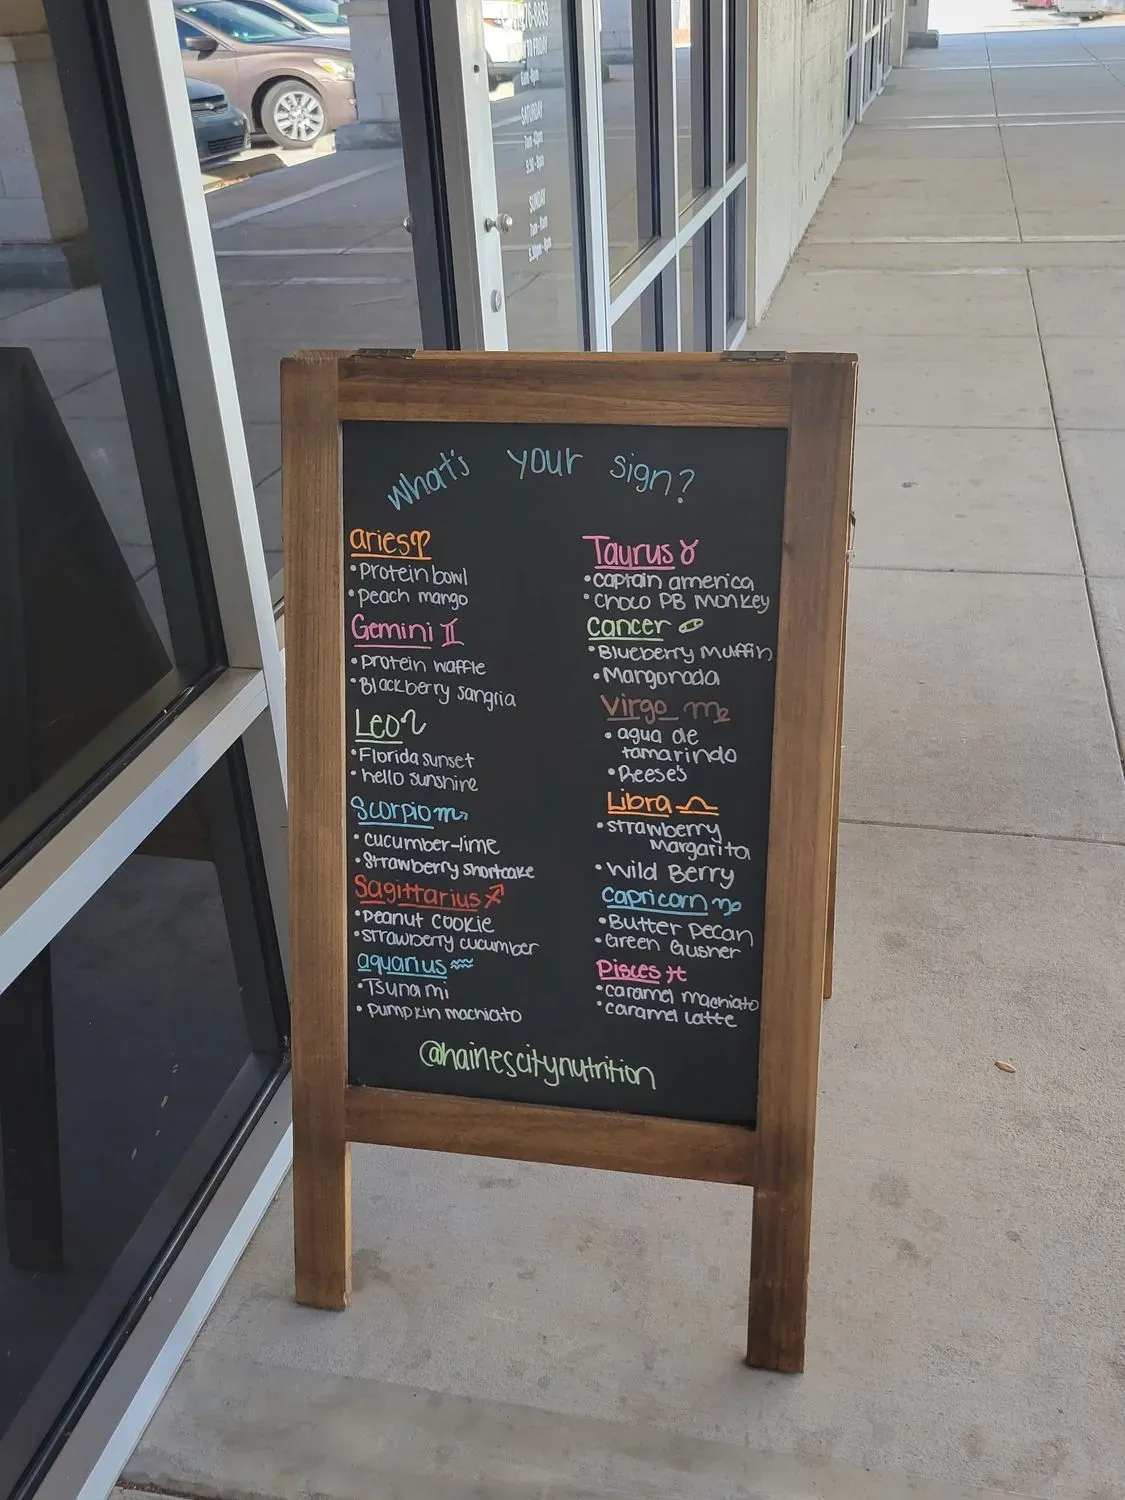 What's your sign?
aries♈
• Protein bowl
• Peach mango
Gemini ♊
• protein waffle
• Blackberry sangria
Leo♌
• Florida sunset
• hello sunshine
Scorpio♏
• cucumber-lime
• Strawberry shortcake
Sagittarius♐
• Peanut cookie
• strawberry cucumber
aquarius♒
• Tsunami
• pumpkin machiato
Taurus♉
• captain america
• Choco PB Monkey
Cancer ♋
• Blueberry Muffin
• Mangonada
Virgo ♍
• agua de
tamarindo
• Reese's
Libra♎
• strawberry
Margarita
• Wild Berry
Capricorn♑
• Butter Pecan
• Green Gusher
Pisces♓
• caramel machiato
• caramel Latte
@hainescitynutrition
SATURDAY
SUNDAY